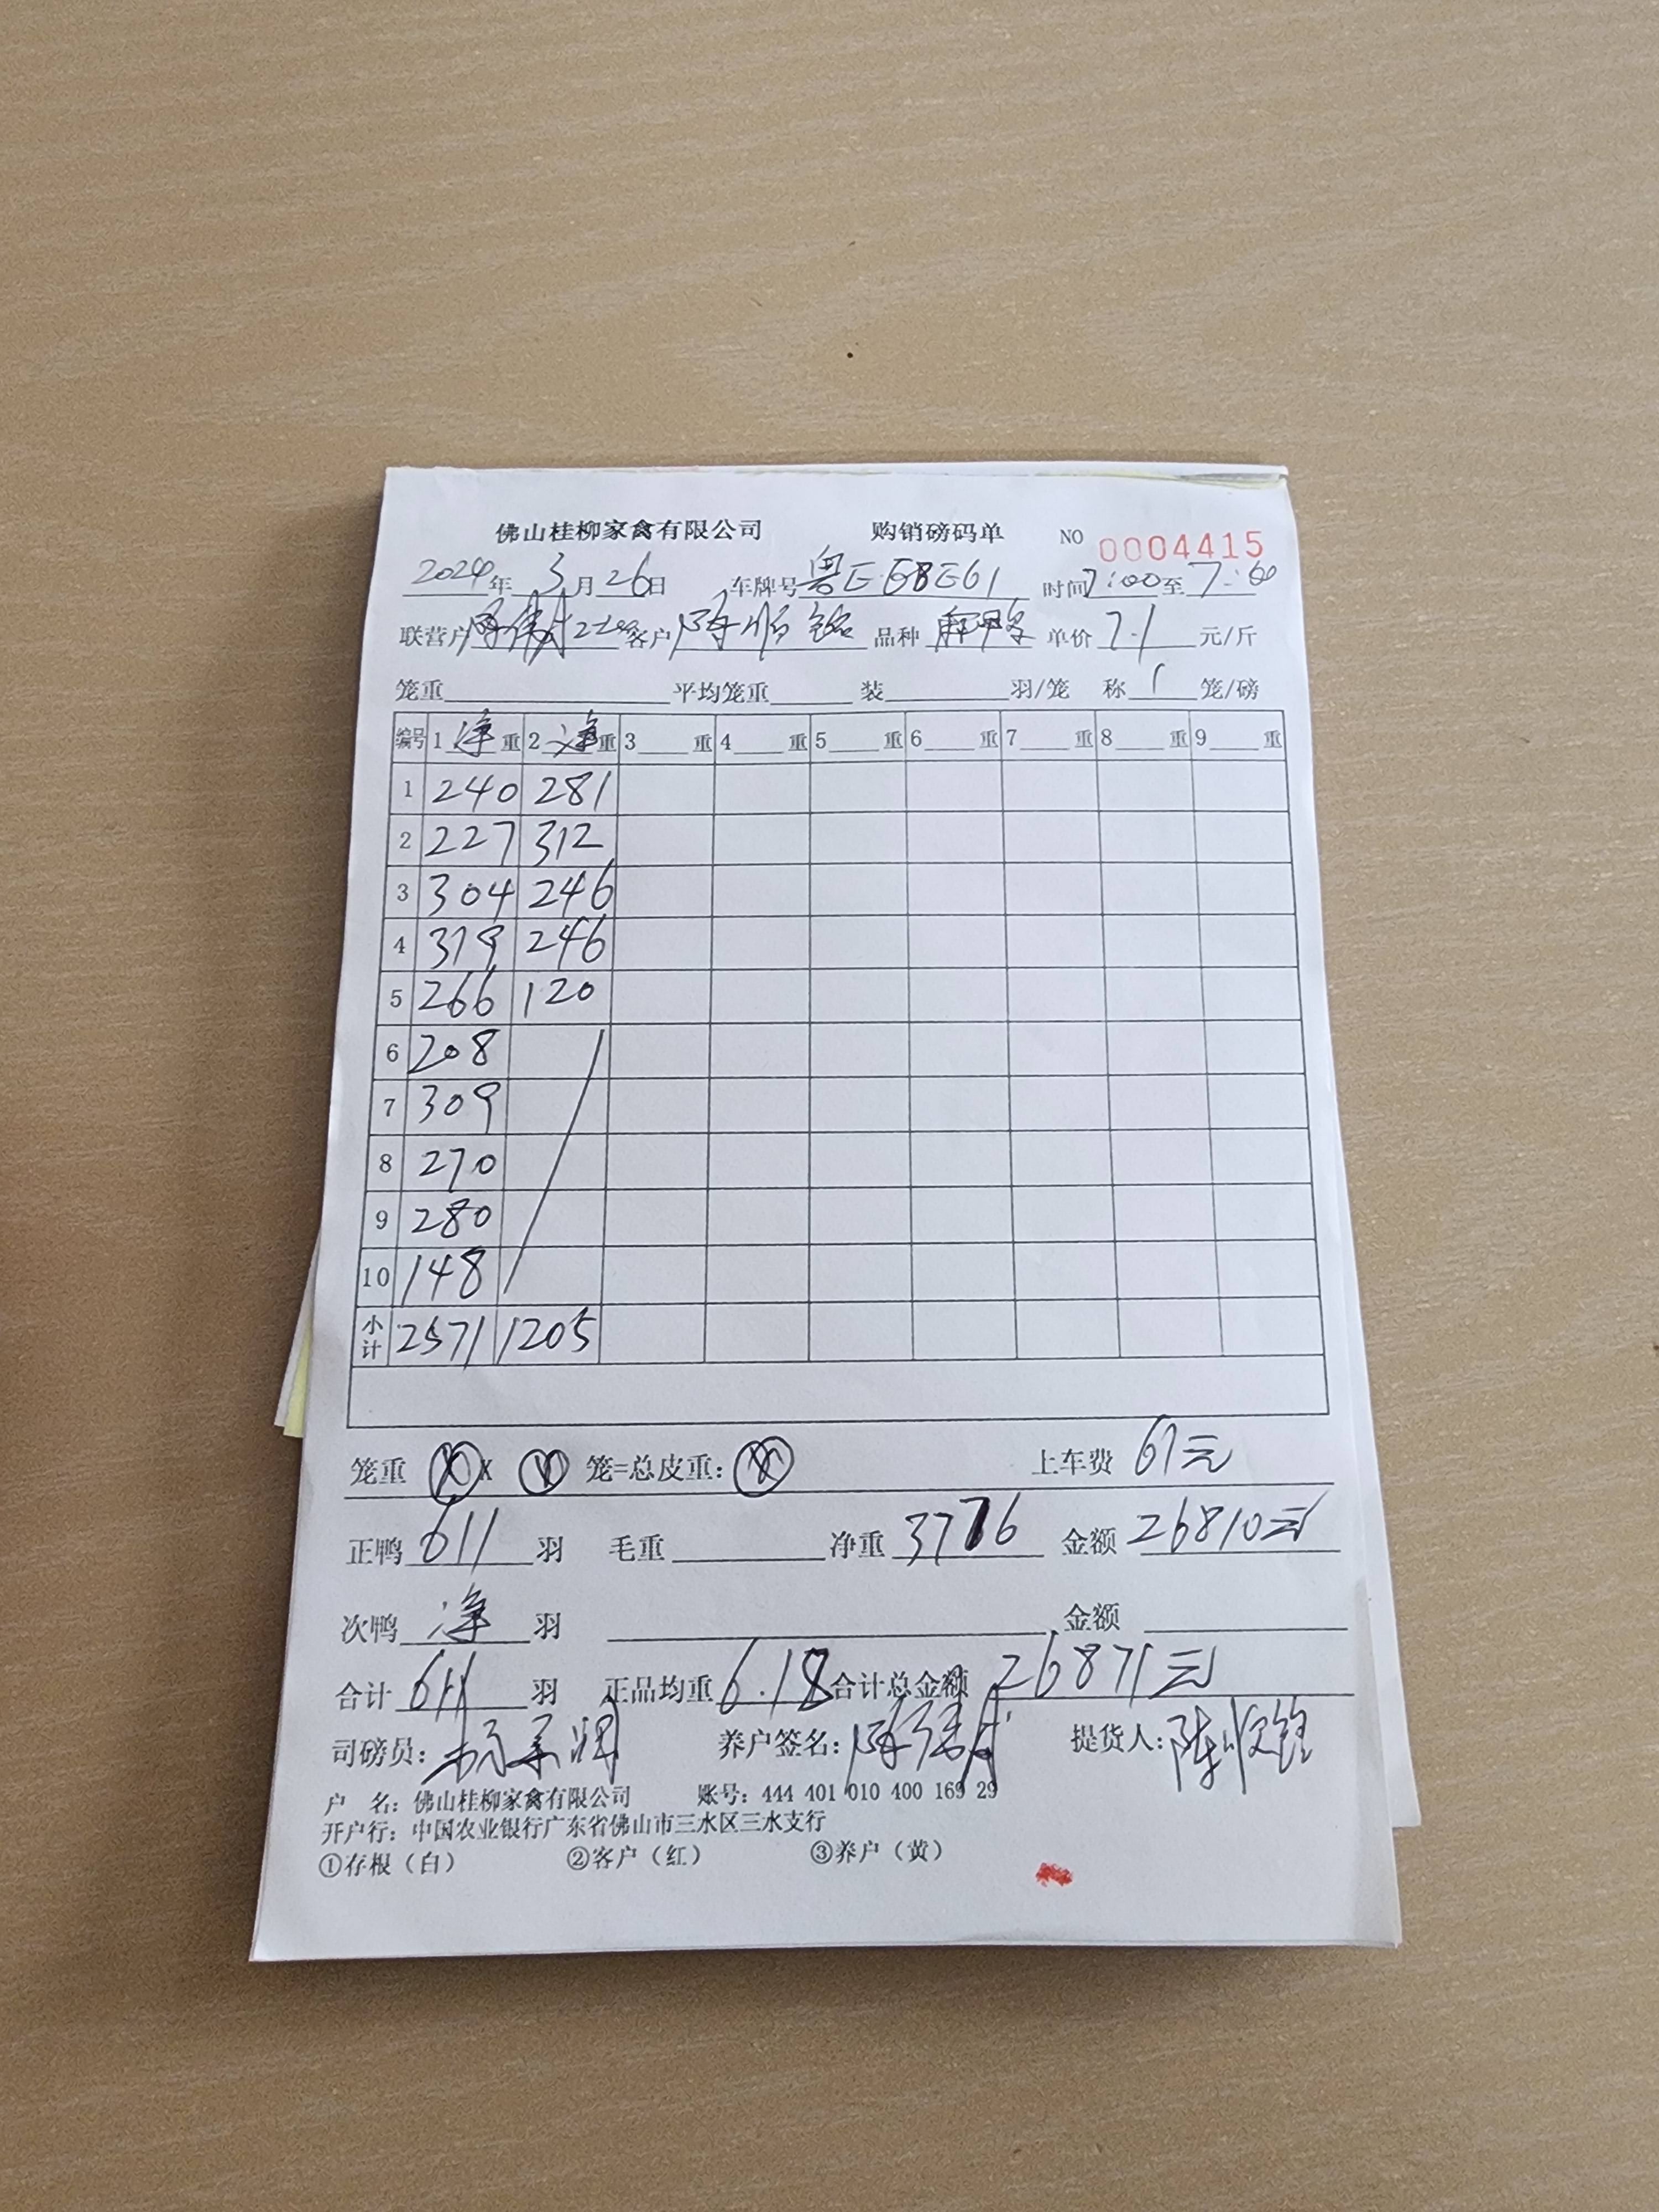 佛山桂柳家禽有限公司 购销磅码单 NO 0004415
2024年 3月26日 车牌号 粤E·GBE61 时间7:00至7:
联营户 客户 陈顺铭 品种 麻鸭 单价 7.1 元/斤
笼重 平均笼重 装 羽/笼 称 1 笼/磅
编号 1 净 重 2 净 重 3 重 4 重 5 重 6 重 7 重 8 重 9 重
1 240 281
2 227 312
3 304 246
4 319 246
5 266 120
6 208
7 309
8 270
9 280
10 148
小计 2571 1205
笼重 X 笼=总皮重: 上车费 61元
正鸭 611 羽 毛重 净重 3776 金额 26810元
次鸭 净 羽 金额
合计 611 羽 正品均重 6.18 合计总金额 26871元
司磅员: 养户签名: 提货人:
户 名: 佛山桂柳家禽有限公司 账号: 444 401 010 400 169 29
开户行: 中国农业银行广东省佛山市三水区三水支行
①存根(白) ②客户(红) ③养户(黄)